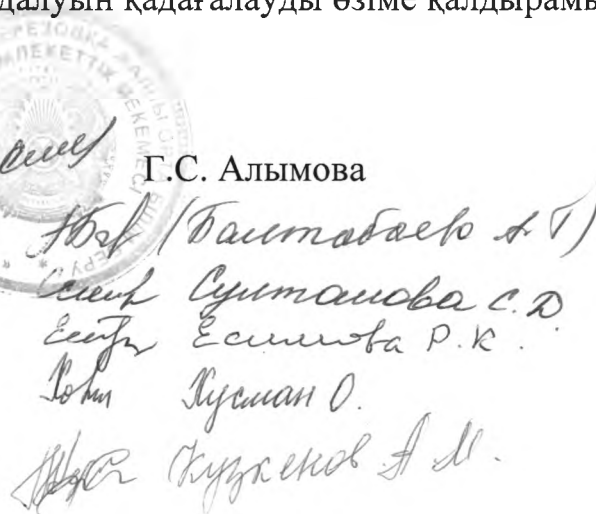 далуын қадағалауды өзіме қалдырамы
Г.С. Алымова
(Балтабаева А Г)
Султанова С.Д
Есимова Р.К.
Хусман О.
Кузкенов А М.